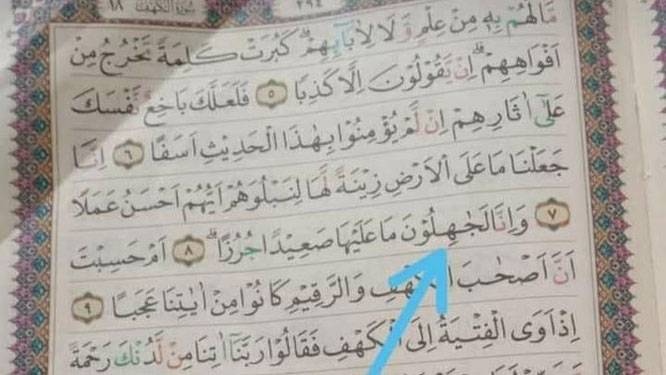 ١٨ سُوْرَةُ الْكَهْفِ ٢٩٤
مَا لَهُمْ بِهٖ مِنْ عِلْمٍ وَّلَا لِاٰبَاۤىِٕهِمْۗ كَبُرَتْ كَلِمَةً تَخْرُجُ مِنْ
اَفْوَاهِهِمْۗ اِنْ يَّقُوْلُوْنَ اِلَّا كَذِبًا ٥ فَلَعَلَّكَ بَاخِعٌ نَّفْسَكَ
عَلٰٓى اٰثَارِهِمْ اِنْ لَّمْ يُؤْمِنُوْا بِهٰذَا الْحَدِيْثِ اَسَفًا ٦ اِنَّا
جَعَلْنَا مَا عَلَى الْاَرْضِ زِيْنَةً لَّهَا لِنَبْلُوَهُمْ اَيُّهُمْ اَحْسَنُ عَمَلًا
٧ وَاِنَّا لَجٰهِلُوْنَ مَا عَلَيْهَا صَعِيْدًا جُرُزًاۗ ٨ اَمْ حَسِبْتَ
اَنَّ اَصْحٰبَ وَالرَّقِيْمِ كَانُوْا مِنْ اٰيٰتِنَا عَجَبًا ٩
اِذْ اَوَى الْفِتْيَةُ اِلَى الْكَهْفِ فَقَالُوْا رَبَّنَآ اٰتِنَا مِنْ لَّدُنْكَ رَحْمَةً